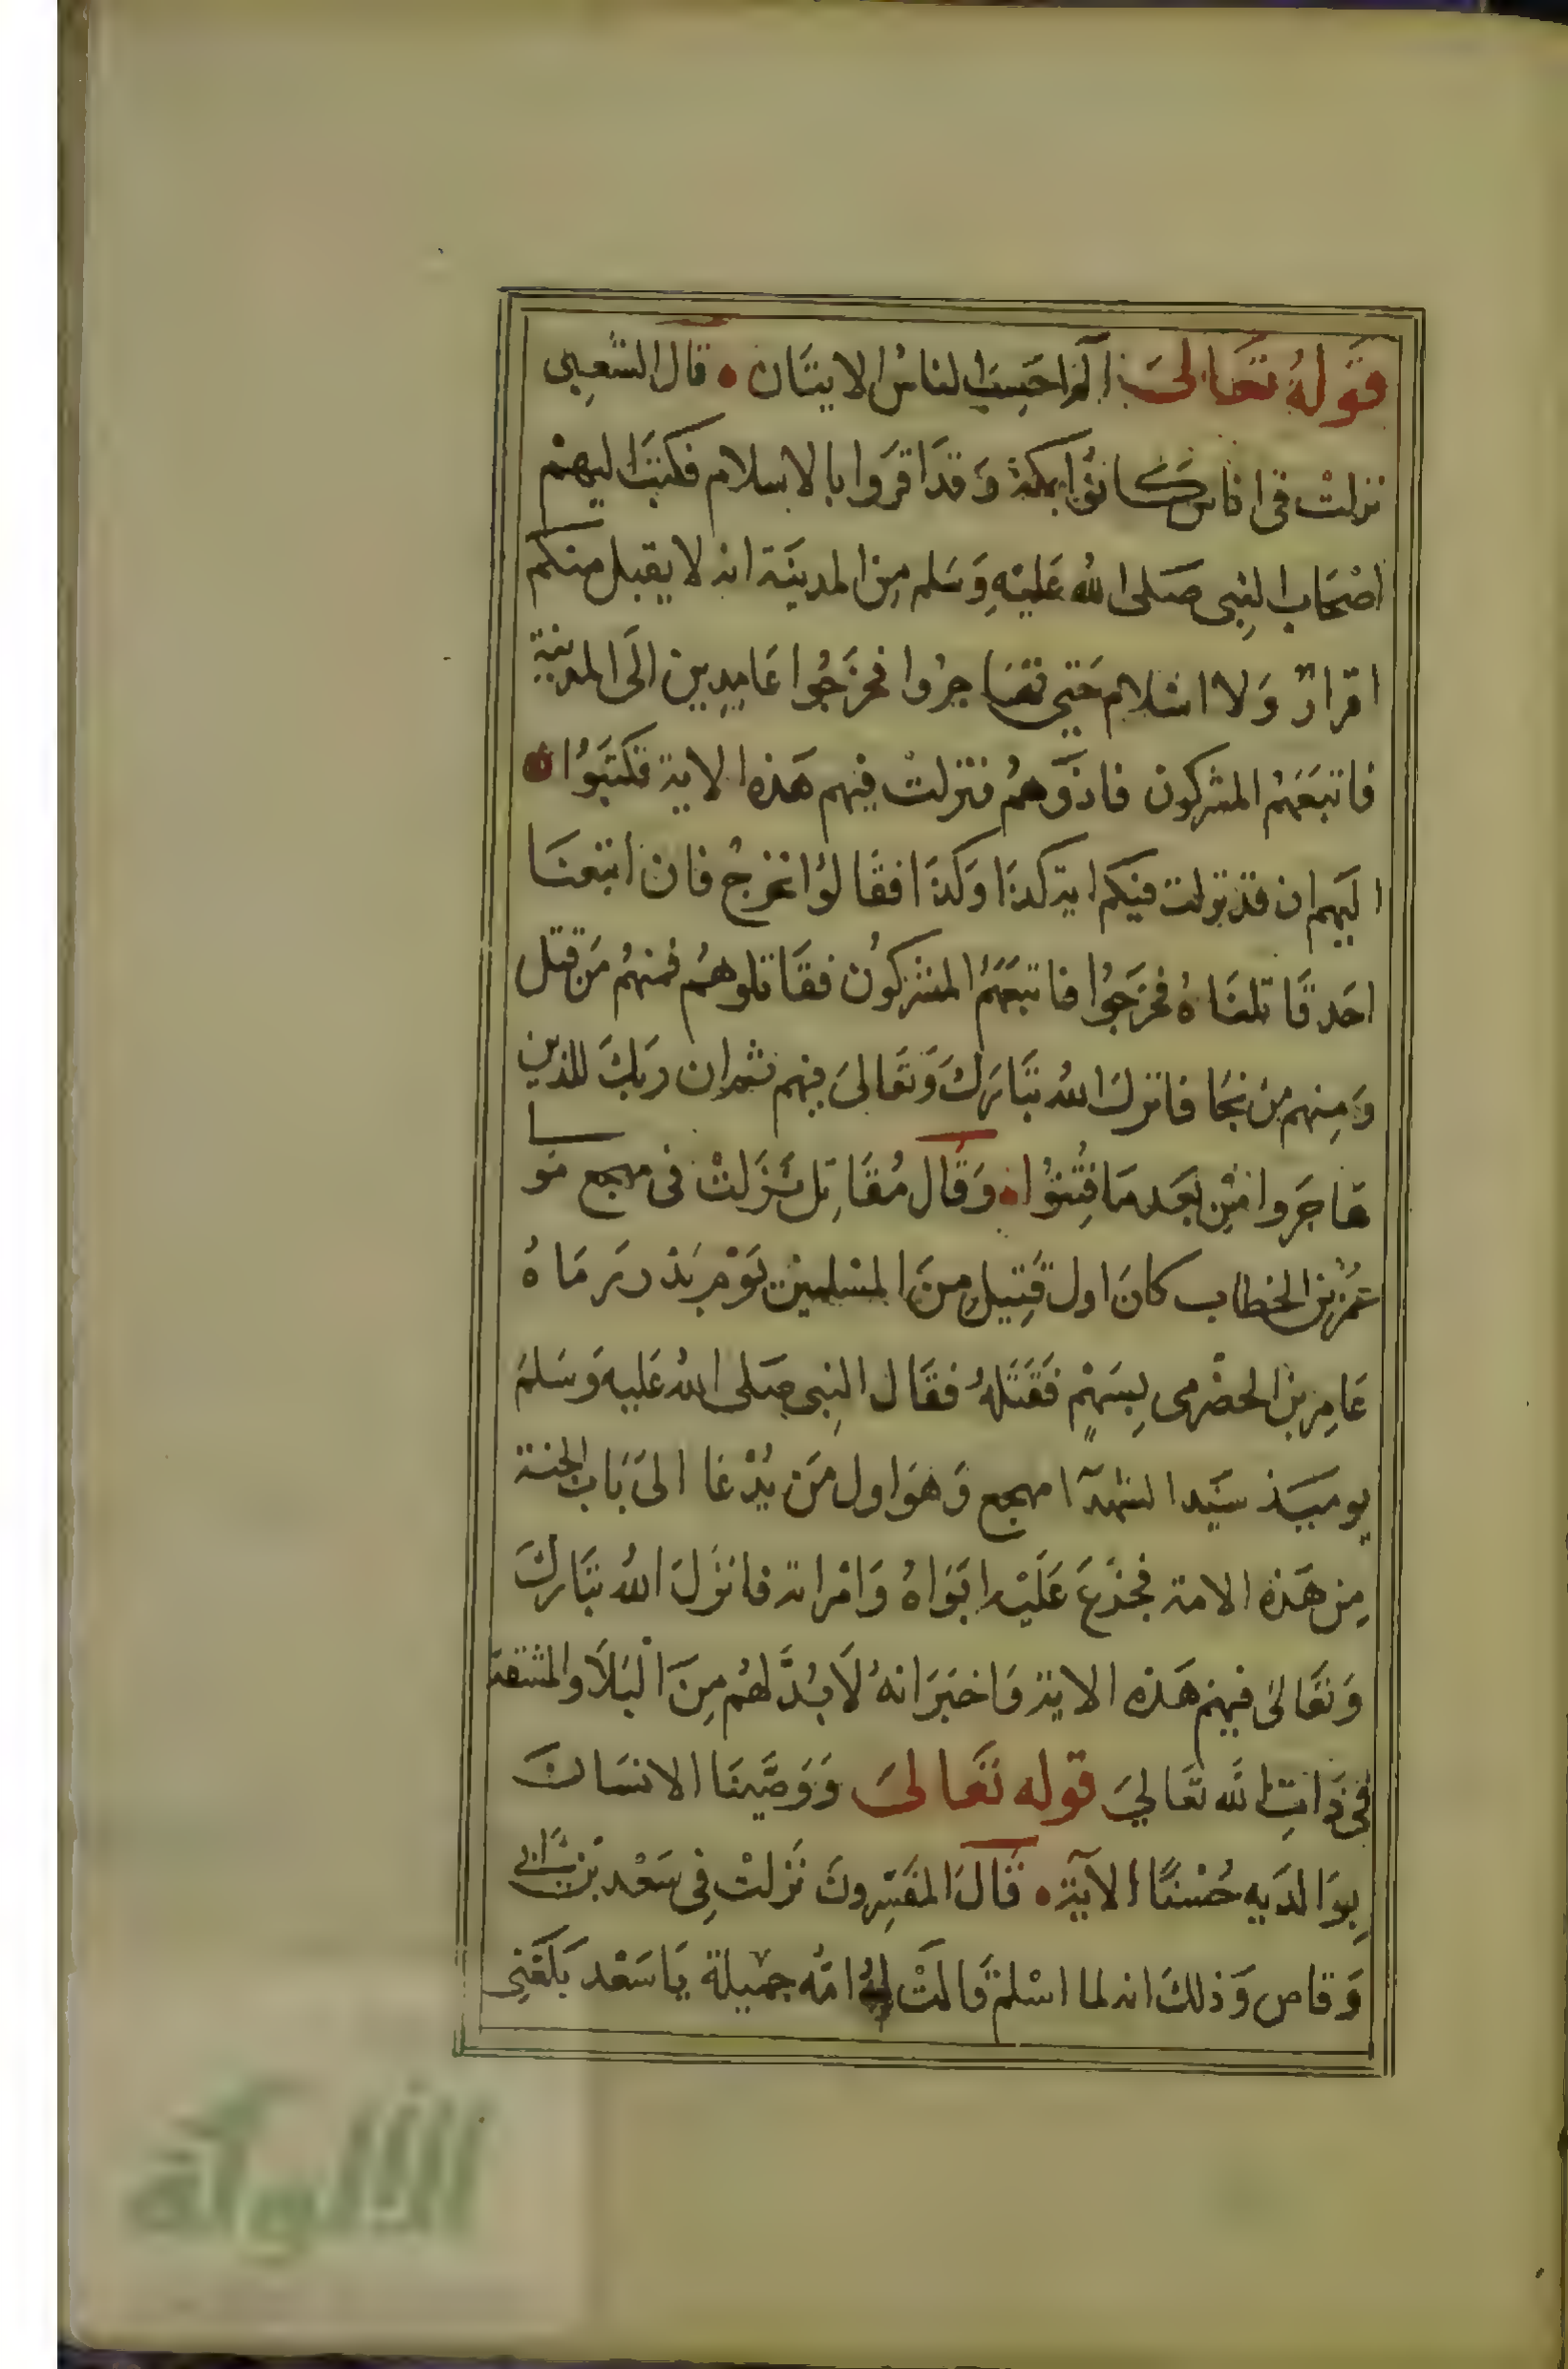 قوله تعالى الم احسب الناس الايتان قال الشعبي
نزلت في اناس كانوا بمكة وقد اقروا بالاسلام فكتب اليهم
اصحاب النبي صلى الله عليه وسلم من المدينة انه لا يقبل منكم
اقرار ولا اسلام حتى تهاجروا فخرجوا عامدين الى المدينة
فاتبعهم المشركون فاذوهم فنزلت فيهم هذه الاية فكتبوا
اليهم ان قد نزلت فيكم اية كذا وكذا فقالوا نخرج فان اتبعنا
احد قاتلناه فخرجوا فاتبعهم المشركون فقاتلوهم فمنهم من قتل
ومنهم من نجا فانزل الله تبارك وتعالى فيهم ثم ان ربك للذين
هاجروا من بعد ما فتنوا وقال مقاتل نزلت في مهجع مولى
عمر بن الخطاب كان اول قتيل من المسلمين يوم بدر رماه
عامر بن الحضرمي بسهم فقتله فقال النبي صلى الله عليه وسلم
يوميذ سيد الشهدآ مهجع وهو اول من يدعا الى باب الجنة
من هذه الامة فجزع عليه ابواه وامراته فانزل الله تبارك
وتعالى فيهم هذه الاية واخبر انه لا بد لهم من البلا والمشقة
في ذات الله تعالى قوله تعالى ووصينا الانسان
بوالديه حسنا الآية قال المفسرون نزلت في سعد بن ابي
وقاص وذلك انه لما اسلم قالت له امه جميلة يا سعد بلغني
الألوكة